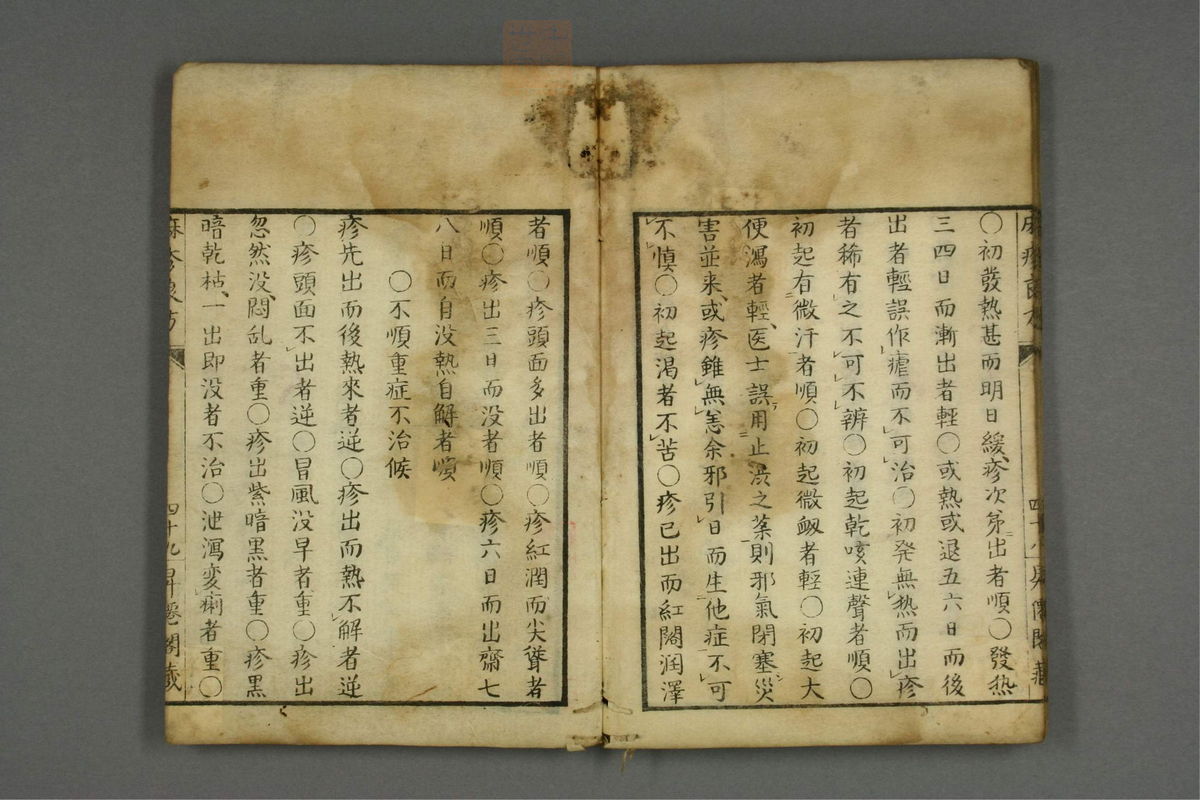 〇初發熱甚而明日緩疹次第出者順〇發热
三四日而漸出者輕〇或熱或退五六日而後
出者輕誤作瘧而不可治〇初発無热而出疹
者稀有之不可不辨〇初起乾咳連聲者順〇
初起有微汗者順〇初起微衂者輕〇初起大
便瀉者輕医士誤用止渋之薬則邪氣閉塞災
害並来或疹雖無恙余邪引日而生他症不可
不慎〇初起渇者不苦〇疹已出而紅闊润澤
者順〇疹頭面多出者順〇疹紅潤而尖聳者
順〇疹出三日而没者順〇疹六日而出齋七
八日而自没熱自解者順
〇不順重症不治候
疹先出而後熱來者逆〇疹出而熱不解者逆
〇疹頭面不出者逆〇冒風没早者重〇疹出
忽然没悶乱者重〇疹出紫暗黒者重〇疹黒
暗乾枯一出即没者不治〇泄瀉変痢者重〇
四十九